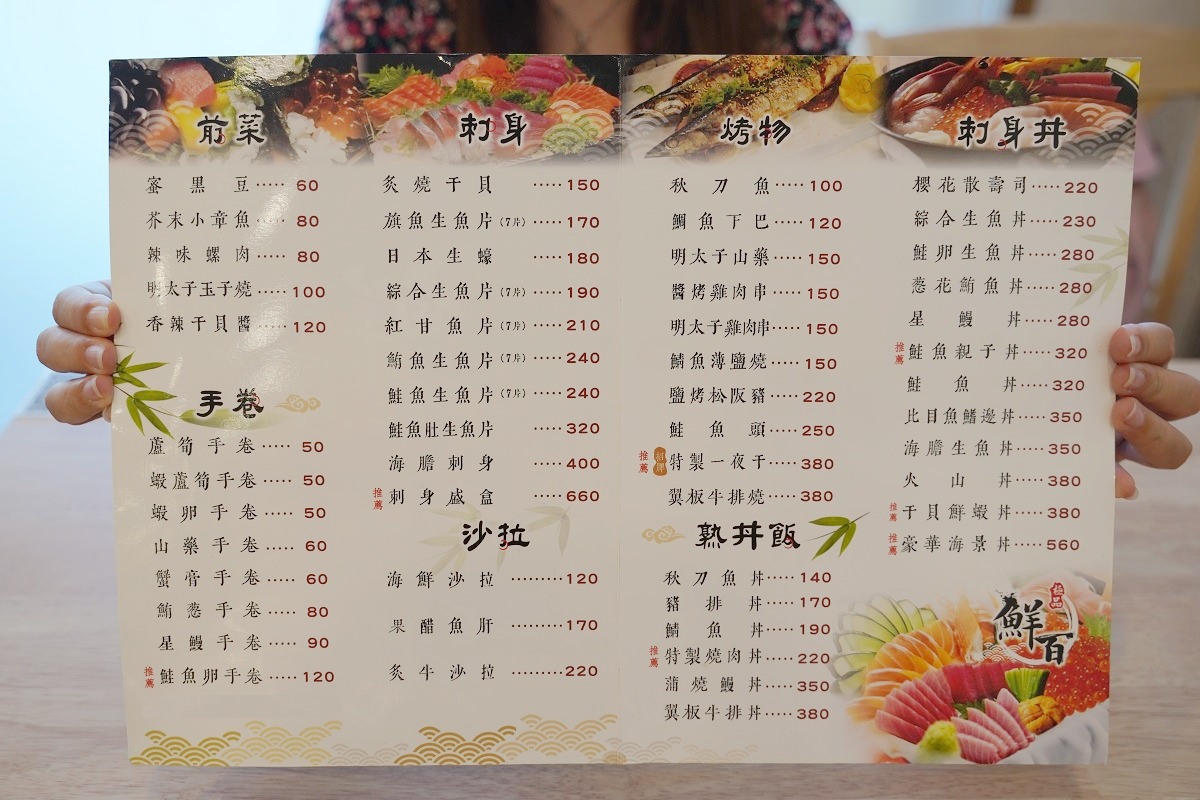 前菜
蜜黑豆·····60
芥末小章魚·····80
辣味螺肉·····80
明太子玉子燒·····100
香辣干貝醬·····120
手卷
蘆筍手卷·····50
蝦蘆筍手卷·····50
蝦卵手卷·····50
山藥手卷·····60
蟹膏手卷·····60
鮪葱手卷·····80
星鰻手卷·····90
推薦 鮭魚卵手卷·····120
刺身
炙燒干貝·····150
旗魚生魚片(7片)·····170
日本生蠔·····180
綜合生魚片(7片)·····190
紅甘魚片(7片)·····210
鮪魚生魚片(7片)·····240
鮭魚生魚片(7片)·····240
鮭魚肚生魚片·····320
海膽刺身·····400
推薦 刺身盛盒·····660
沙拉
海鮮沙拉·········120
果醋魚肝·········170
炙牛沙拉·········220
烤物
秋刀魚·····100
鯛魚下巴·····120
明太子山藥·····150
醬烤雞肉串·····150
明太子雞肉串·····150
鯖魚薄鹽燒·····150
鹽烤松阪豬·····220
鮭魚頭·····250
推薦 招牌 特製一夜干·····380
翼板牛排燒·····380
熟丼飯
秋刀魚丼·····140
豬排丼·····170
鯖魚丼·····190
推薦 特製燒肉丼·····220
蒲燒鰻丼·····350
翼板牛排丼·····380
刺身丼
櫻花散壽司·····220
綜合生魚丼·····230
鮭卵生魚丼·····280
葱花鮪魚丼·····280
星鰻丼·····280
推薦 鮭魚親子丼·····320
鮭魚丼·····320
比目魚鰭邊丼·····350
海膽生魚丼·····350
火山丼·····380
推薦 干貝鮮蝦丼·····380
推薦 豪華海景丼·····560
極品
鮮百